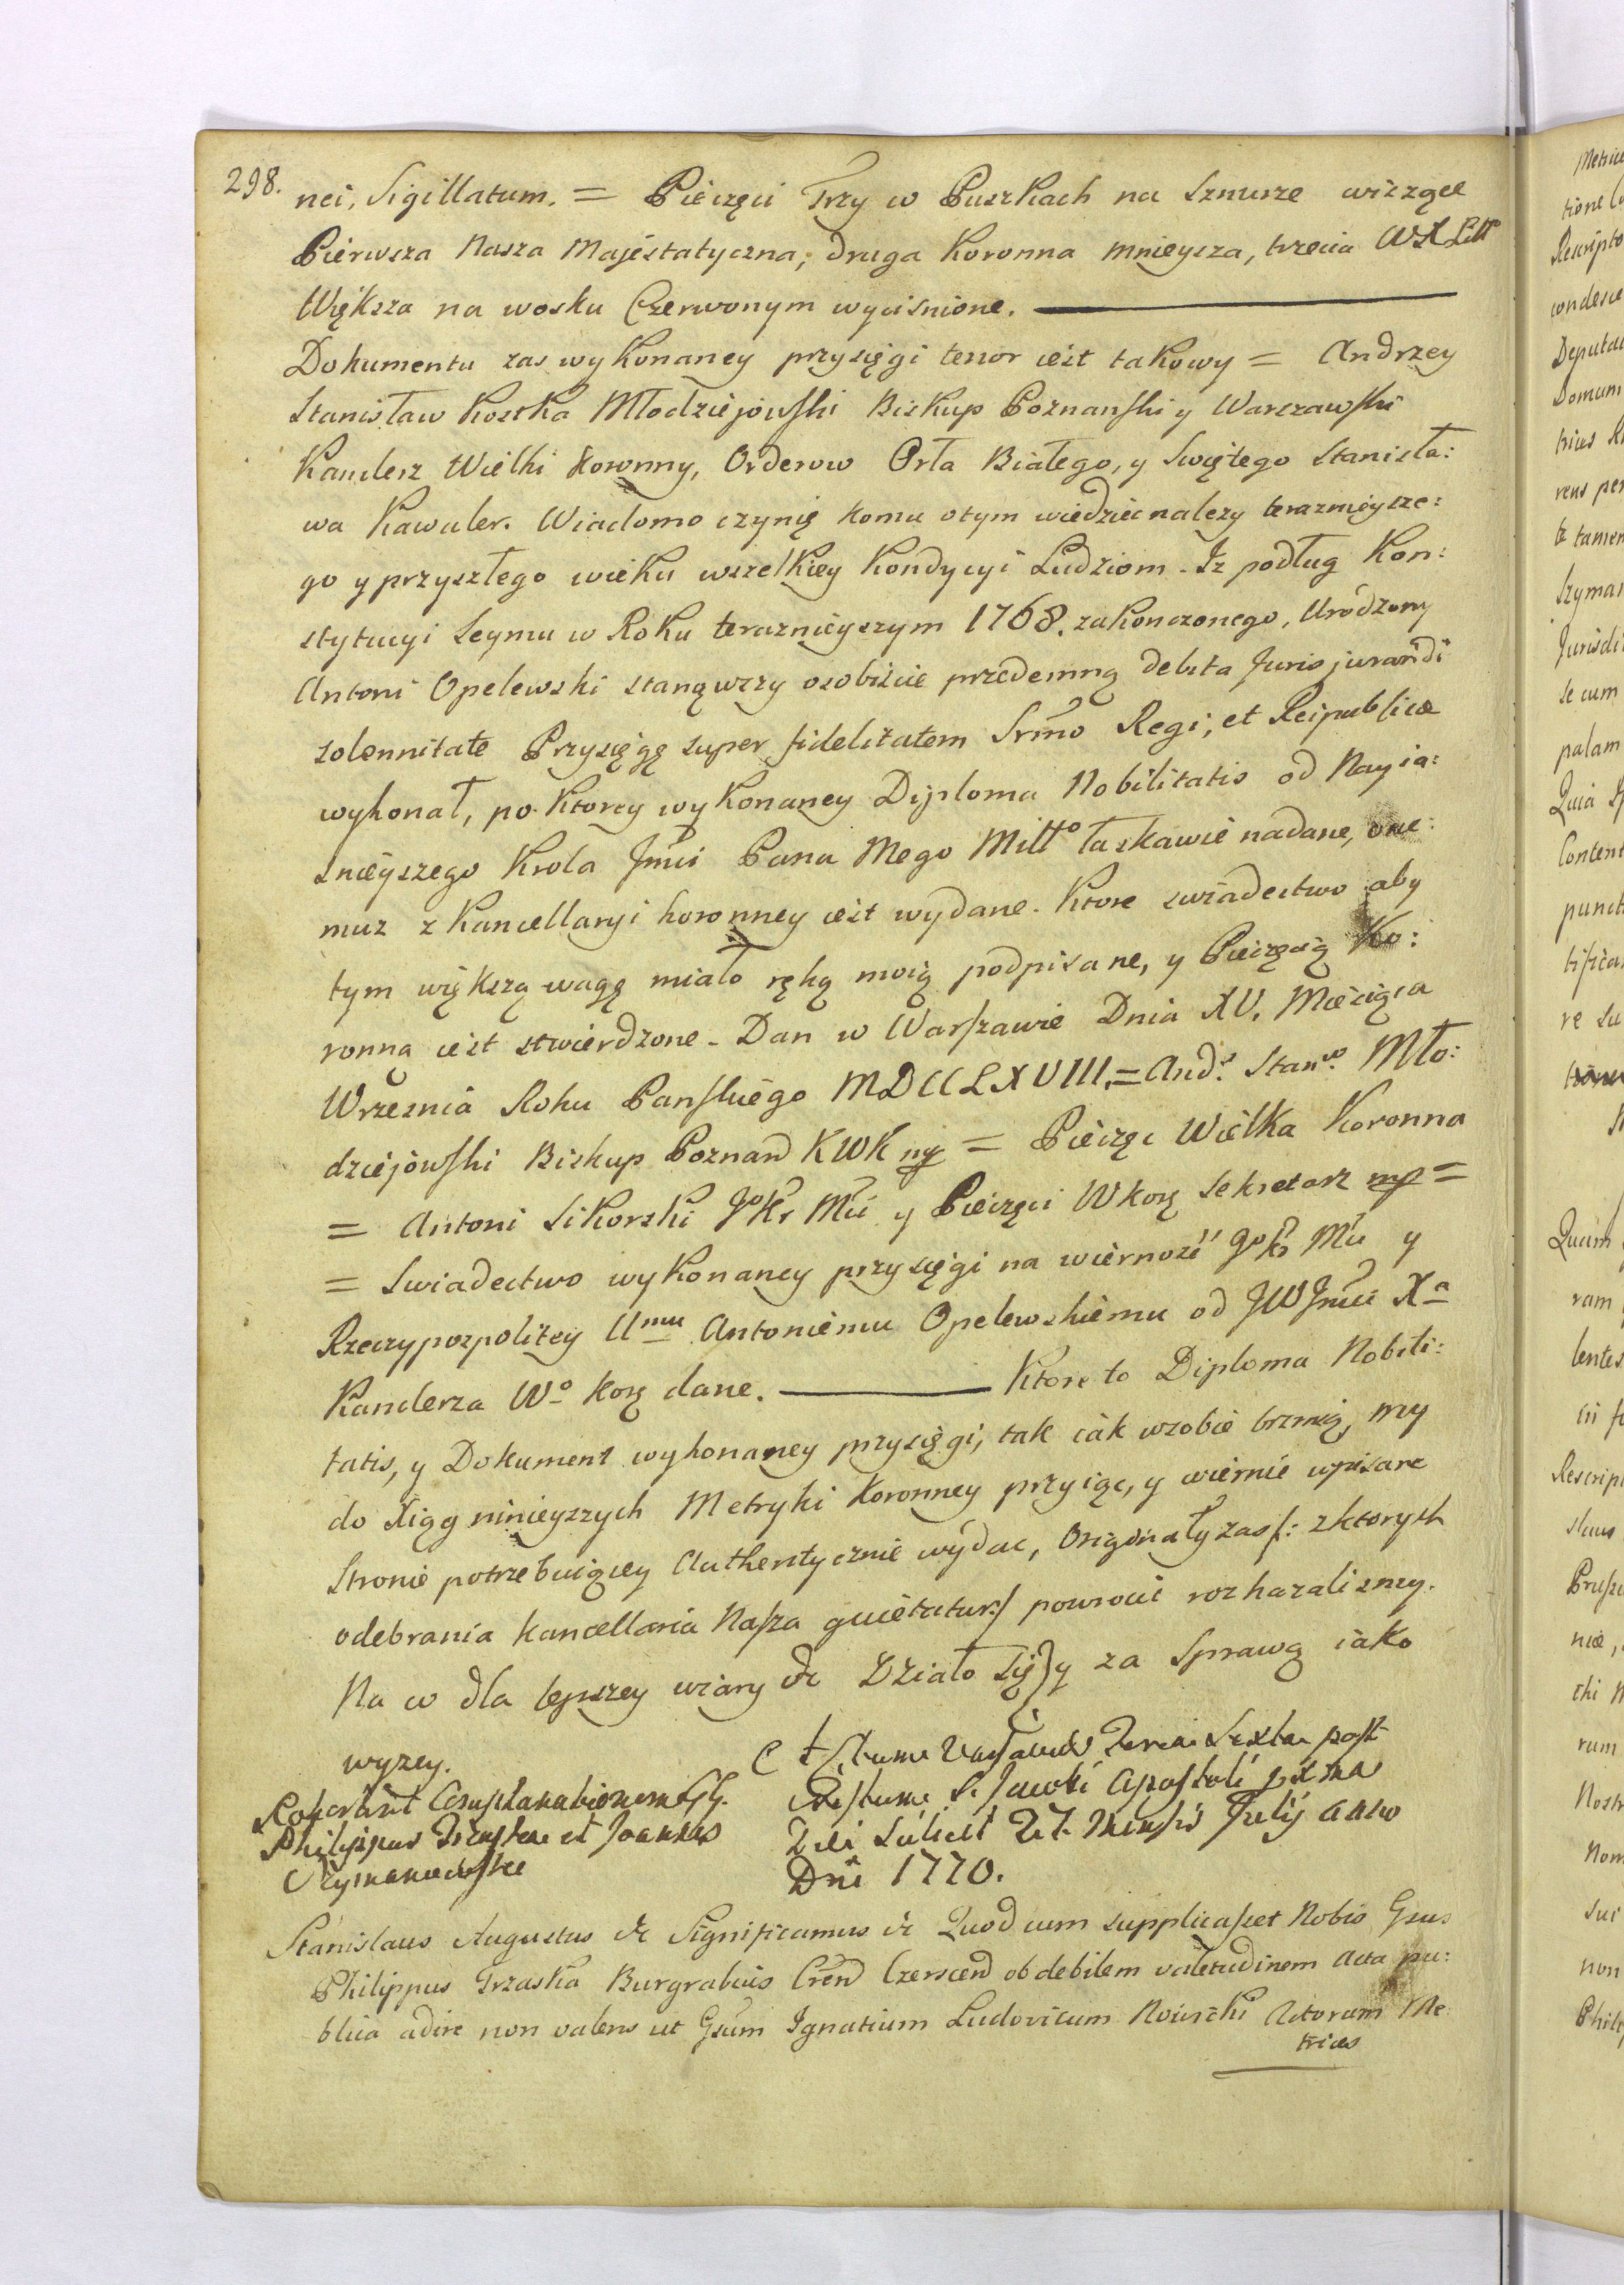 298.
nei, Sigillatum. = Pieczęci Trzy w Puszkach na Sznurze wiszące
Pierwsza Nasza Majestatyczna, druga Koronna mnieysza, trzecia WX Litt
Większa na wosku Czerwonym wycisnione.
Dokumentu zas wykonaney przysięgi tenor iest takowy = Andrzey
Stanisław Kostka Młodziejowski Biskup Poznanski y Warszawski
Kanclerz Wielki Koronny, Orderow Orła Białego, y Swiętego Stanisła:
wa Kawaler. Wiadomo czynię komu otym wiedziec nalezy teraznieysze:
go y przyszłego wieku wszelkiey Kondycyi Ludziom. Iz podług Kon:
stytucyi Seymu w Roku teraznieyszym 1768. zakonczonego, Urodzony
Antoni Opelewski stanąwszy osobiscie przedemną debita Jurisjurandi
solennitate Przysięgę super fidelitatem Srmo Regi, et Reipublicæ
wykonał, po ktorey wykonaney Diploma Nobilitatis od Nayia:
snieyszego Krola Jmci Pana Mego Mill° łaskawie nadane, one:
muz z Kancellaryi koronney iest wydane. Ktore swiadectwo aby
tym większą wagę miało ręką moią podpisane, y Pieczęcią Ko:
ronną iest stwierdzone. Dan w Warszawie Dnia XV. Miesiąca
Wrzesnia Roku Panskiego MDCCLXVIII. = And. Stanw. Mło:
dziejowski Biskup Poznan KWK mp = Pieczęc Wielka Koronna
= Antoni Sikorski JoKr Mci y Pieczęci WKorz Sekretarz mp =
= Swiadectwo wykonaney przysięgi na wiernosc JoKr Mci y
Rzeczypospolitey Umu Antoniemu Opelewskiemu od JWJmci Xa
Kanclerza Wo Korz dane. Ktore to Diploma Nobili:
tatis, y Dokument wykonaney przysięgi, tak iak wsobie brzmią, my
do Xiąg ninieyszych Metryki Koronney przyiąc, y wiernie wpisane
Stronie potrzebuiącey Authentycznie wydac, Originały zas /: zktorych
odebrania kancellaria Nasza quietatur :/ powrocic rozkazalismy.
Na w dla lepszey wiary &c Działo się) y za Sprawą iako
wyzey.
Actum Varsaviæ Feria Sexta post
Festum S. Jacobi Apostoli
Philippus Trzaska et Joannes
Die scilicet 27. Mensis Julij anno
Szymanowskie
Dni 1770.
Stanislaus Augustus &c Significamus &c Quod cum supplicasset Nobis Gsus
Philippus Trzaska Burgrabius Cren Czerscen ob debilem valetudinem acta pu:
blica adire non valens ut Gsum Ignatium Ludovicum Actorum Me
trices